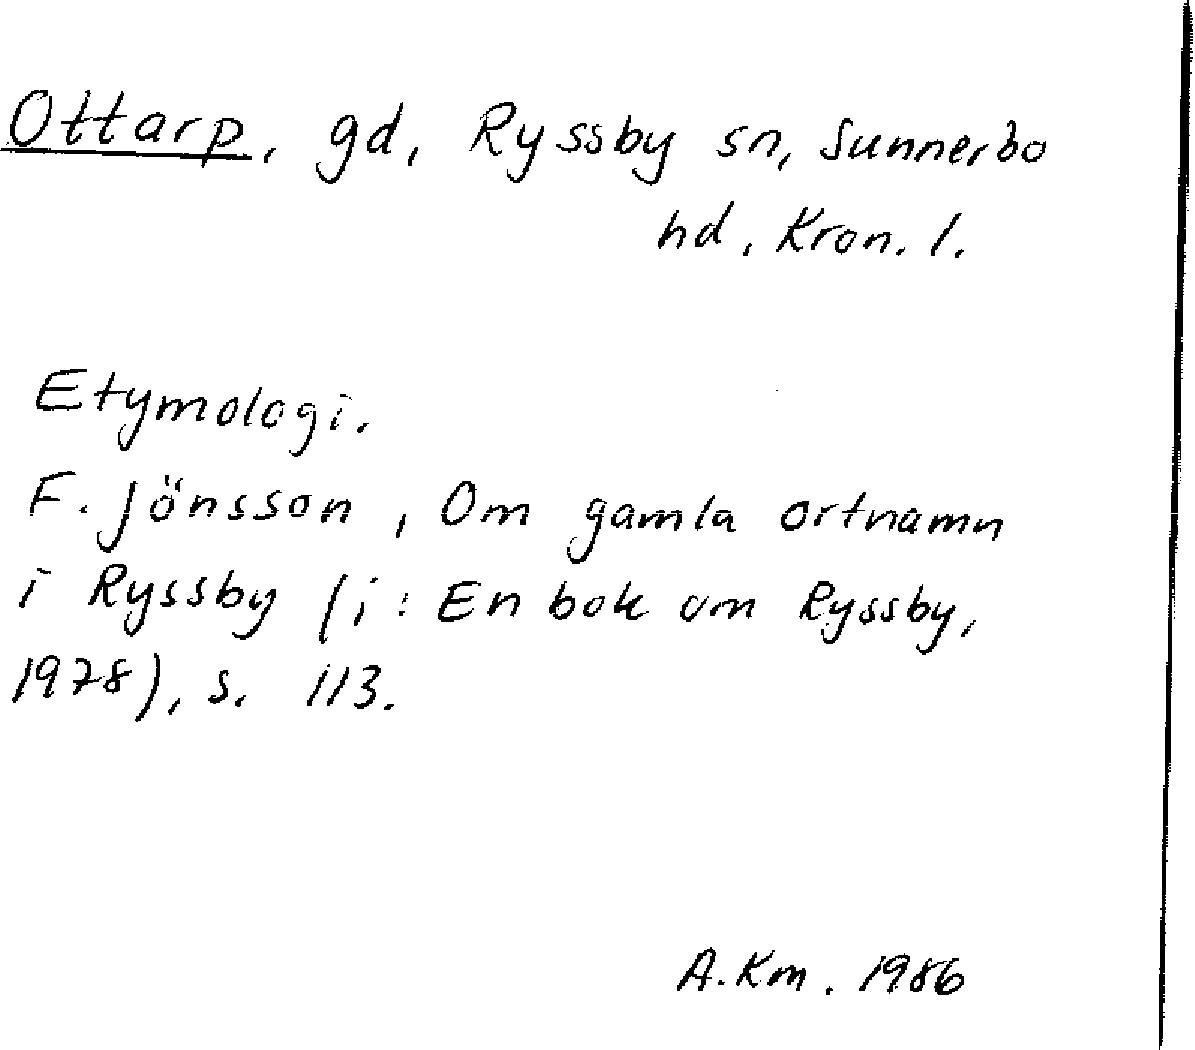 Ottarp, gd, Ryssby sn, Sunnerbo
hd, Kron. l.
Etymologi.
F. Jönsson, Om gamla ortnamn
i Ryssby (i: En bok om Ryssby,
1978), s. 113.
A.Km. 1986